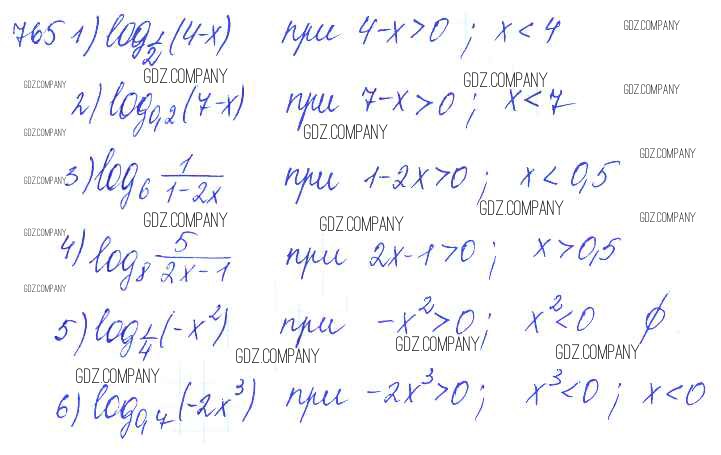 765 1) log_{1/2}(4-x) при 4-x>0 ; x<4
GDZ.COMPANY
GDZ.COMPANY GDZ.COMPANY
GDZ.COMPANY GDZ.COMPANY
2) log_{0,2}(7-x) при 7-x>0 ; x<7
GDZ.COMPANY GDZ.COMPANY
GDZ.COMPANY
3) log_6 1/(1-2x) при 1-2x>0 ; x<0,5
GDZ.COMPANY
GDZ.COMPANY GDZ.COMPANY GDZ.COMPANY GDZ.COMPANY
GDZ.COMPANY
4) log_8 5/(2x-1) при 2x-1>0 ; x>0,5
GDZ.COMPANY
5) log_{1/4}(-x²) при -x²>0 ; x²<0 ∅
GDZ.COMPANY GDZ.COMPANY GDZ.COMPANY
GDZ.COMPANY
6) log_{0,7}(-2x³) при -2x³>0 ; x³<0 ; x<0